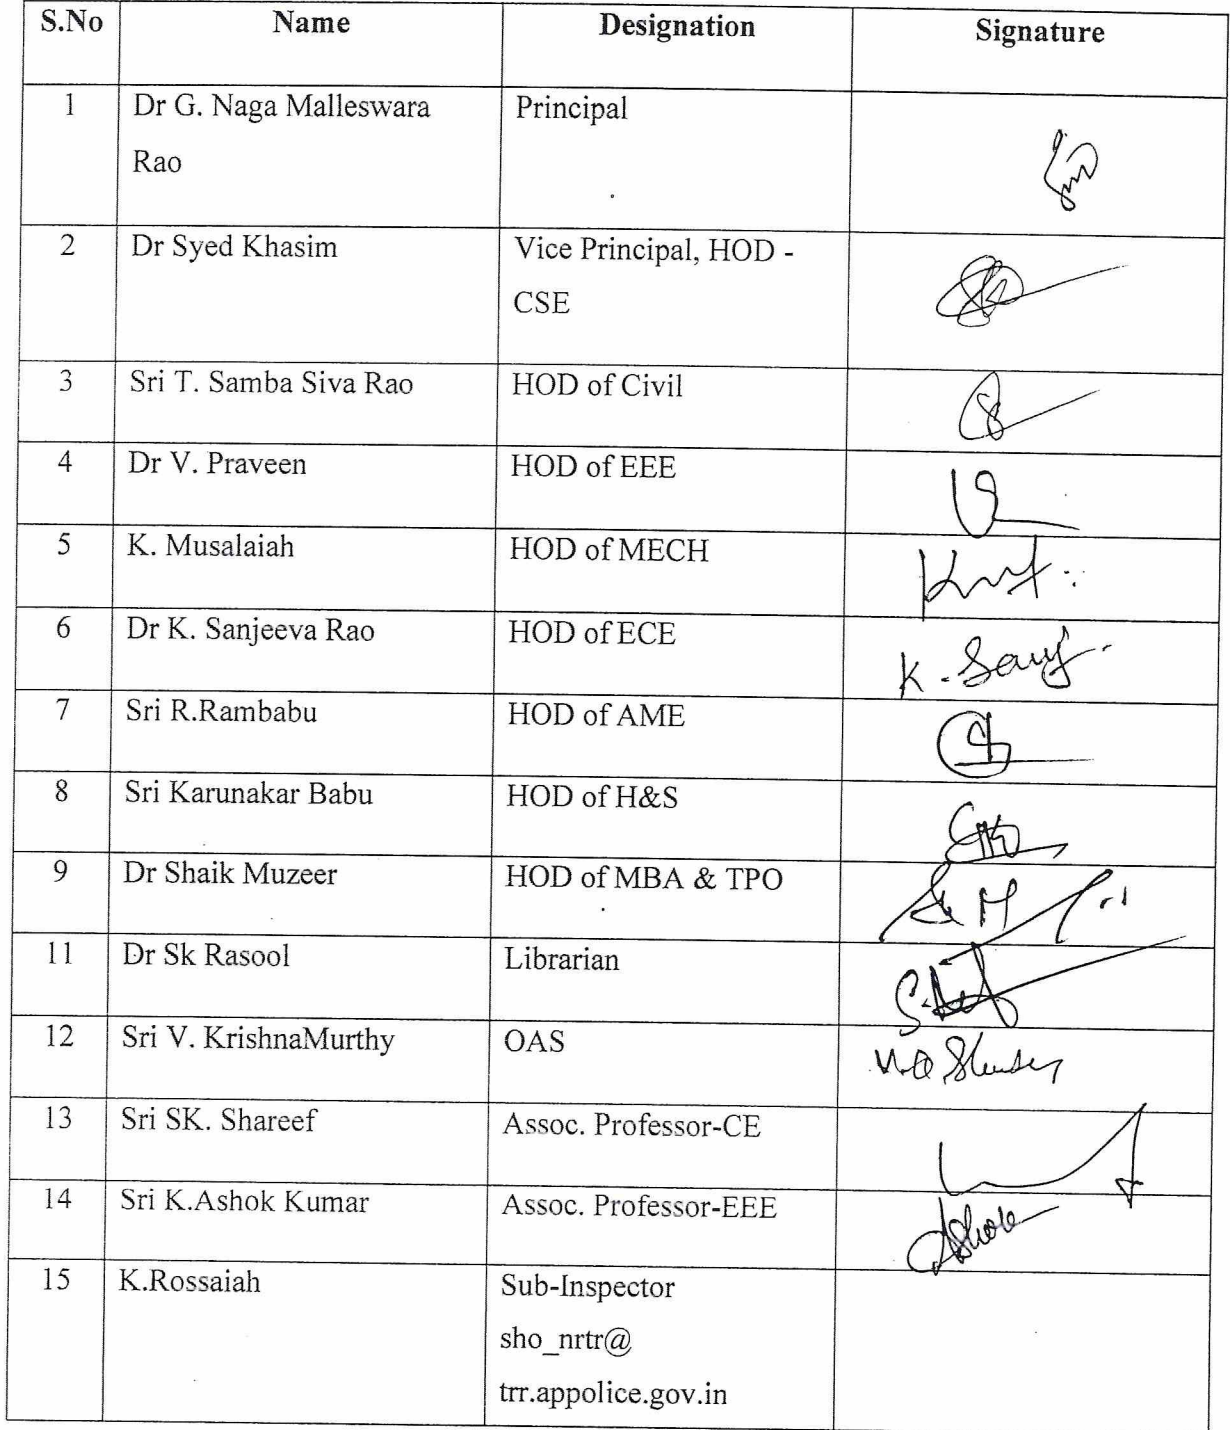 S.No Name Designation Signature
1 Dr G. Naga Malleswara Principal
Rao
2 Dr Syed Khasim Vice Principal, HOD -
CSE
3 Sri T. Samba Siva Rao HOD of Civil
4 Dr V. Praveen HOD of EEE
5 K. Musalaiah HOD of MECH
6 Dr K. Sanjeeva Rao HOD of ECE
7 Sri R.Rambabu HOD of AME
8 Sri Karunakar Babu HOD of H&S
9 Dr Shaik Muzeer HOD of MBA & TPO
11 Dr Sk Rasool Librarian
12 Sri V. KrishnaMurthy OAS
13 Sri SK. Shareef Assoc. Professor-CE
14 Sri K.Ashok Kumar Assoc. Professor-EEE Ashok
15 K.Rossaiah Sub-Inspector
sho_nrtr@
trr.appolice.gov.in